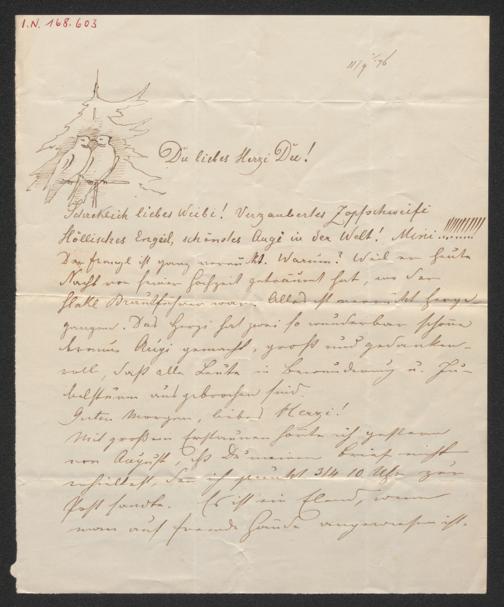 I.N. 168.603
11/9 76
Du liebes Herzi Du!
Schrecklich liebes Weibi! Verzaubertes Zopfschweifi
Höllisches Engerl, schönstes Augi in der Welt! Mini!!!!!!!!!!
Der Franzl ist ganz verrückt. Warum? Weil er heute
Nacht von seiner Hochzeit geträumt hat, wo der
Brautführer war. Alles ist verrückt herge
gangen. Das Herzi hat zwei so wunderbar schöne
braune Augi gemacht, groß und gedanken-
voll, daß alle Leute in Bewunderung u. Ju-
belsturm ausgebrochen sind.
Guten Morgen, liebes Herzi!
Mit großem Erstaunen hörte ich gestern
von August, daß Du meinen Brief nicht
erhieltest, den ich 3/4 10 Uhr zur
Post sandte. Es ist ein Elend, wenn
man auf fremde Hände angewiesen ist.